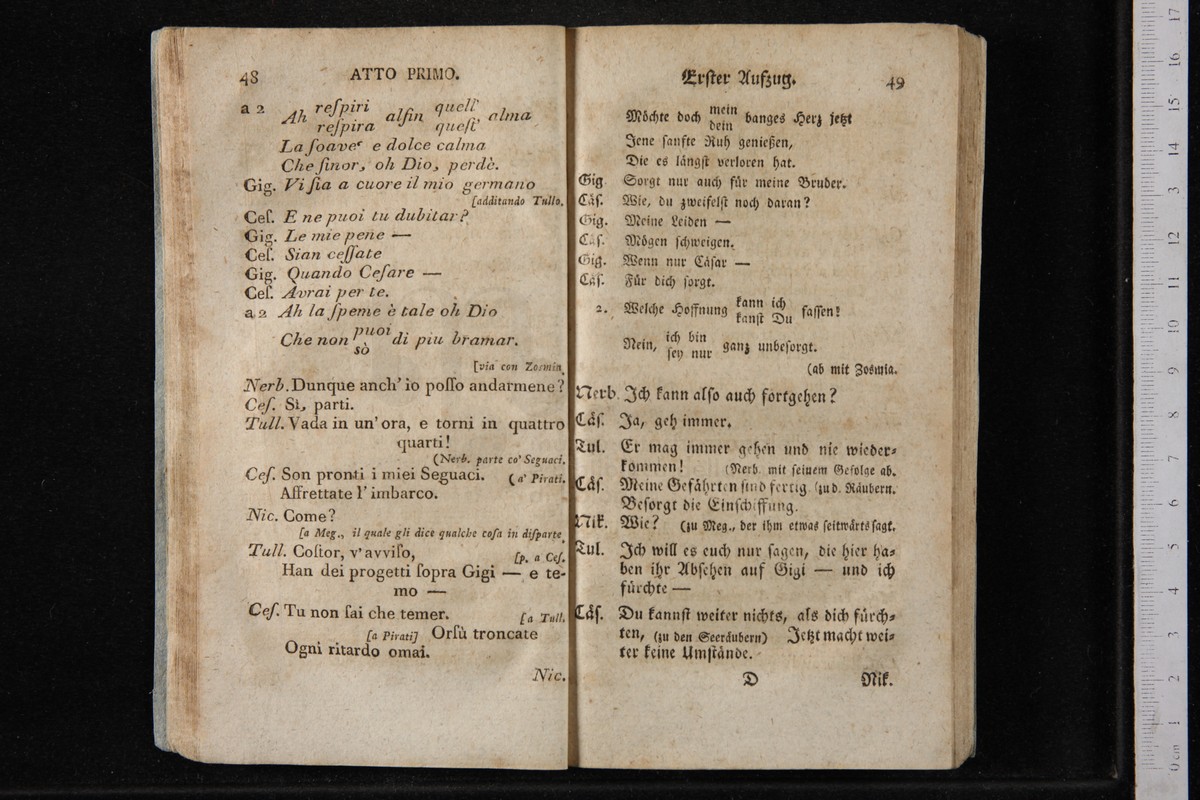 48 ATTO PRIMO.
a 2 Ah reſpiri alfin quell' alma
reſpira queſt'
La ſoave e dolce calma
Che ſinor, oh Dio, perdè.
Gig. Vi ſia a cuore il mio germano
[additando Tullo.
Ceſ. E ne puoi tu dubitar?
Gig. Le mie pene —
Ceſ. Sian ceſſate
Gig. Quando Ceſare —
Ceſ. Avrai per te.
a 2 Ah la ſpeme è tale oh Dio
Che non puoi di piu bramar.
sò
[via con Zosmia.
Nerb. Dunque anch' io poſſo andarmene?
Ceſ. Sì, parti.
Tull. Vada in un' ora, e torni in quattro
quarti!
(Nerb. parte co' Seguaci.
Ceſ. Son pronti i miei Seguaci. (a' Pirati.
Affrettate l' imbarco.
Nic. Come?
[a Meg., il quale gli dice qualche coſa in diſparte.
Tull. Coſtor, v' avviſo, [p. a Ceſ.
Han dei progetti ſopra Gigi — e te-
mo —
Ceſ. Tu non ſai che temer. [a Tull.
[a Pirati] Orſù troncate
Ogni ritardo omai.
Nic.
Erſter Aufzug. 49
Möchte doch mein banges Herz jetzt
dein
Jene ſanfte Ruh genießen,
Die es längſt verloren hat.
Gig Sorgt nur auch für meine Bruder.
Cäſ. Wie, du zweifelſt noch daran?
Gig. Meine Leiden —
Cäſ. Mögen ſchweigen.
Gig. Wenn nur Cäſar —
Cäſ. Für dich ſorgt.
2. Welche Hoffnung kann ich faſſen!
kanſt Du
Nein, ich bin ganz unbeſorgt.
ſey nur
(ab mit Zosmia.
Nerb. Ich kann alſo auch fortgehen?
Cäſ. Ja, geh immer.
Tul. Er mag immer gehen und nie wieder-
kommen! (Nerb. mit ſeinem Gefolge ab.
Cäſ. Meine Gefährten ſind fertig (zu d. Räubern.
Beſorgt die Einſchiffung.
Nik. Wie? (zu Meg., der ihm etwas ſeitwärts ſagt.
Tul. Ich will es euch nur ſagen, die hier ha-
ben ihr Abſehen auf Gigi — und ich
fürchte —
Cäſ. Du kannſt weiter nichts, als dich fürch-
ten, (zu den Seeräubern) Jetzt macht wei-
ter keine Umſtände.
D Nik.
0 cm 1 2 3 4 5 6 7 8 9 10 11 12 13 14 15 16 17